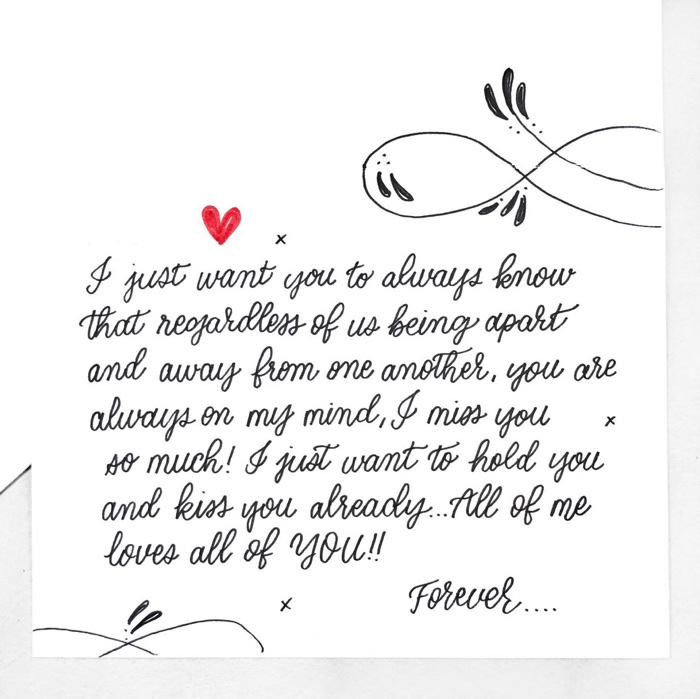 x
I just want you to always know
that regardless of us being apart
and away from one another, you are
always on my mind, I miss you
x
so much! I just want to hold you
and kiss you already...All of me
loves all of YOU!!
Forever....
x